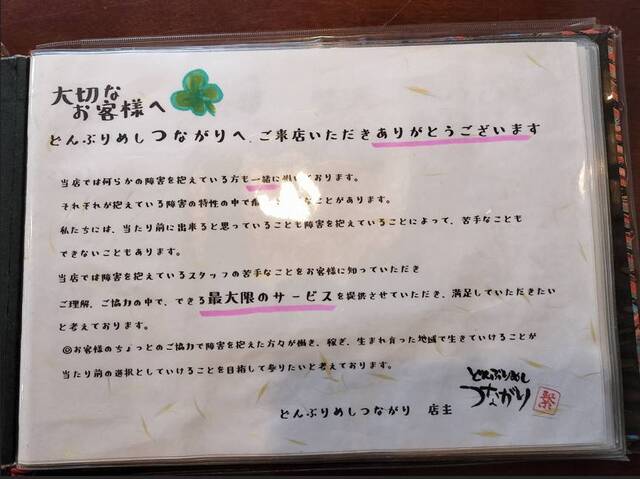 大切な
お客様へ
どんぶりめしつながりへ、ご来店いただきありがとうございます
当店では何らかの障害を抱えている方も一緒に働いております。
それぞれが抱えている障害の特性の中で なことがあります。
私たちには、当たり前に出来ると思っていることも障害を抱えていることによって、苦手なことも
できないこともあります。
当店では障害を抱えているスタッフの苦手なことをお客様に知っていただき
ご理解、ご協力の中で、できる最大限のサービスを提供させていただき、満足していただきたい
と考えております。
◎お客様のちょっとのご協力で障害を抱えた方々が働き、稼ぎ、生まれ育った地域で生きていけることが
当たり前の選択としていけることを目指して参りたいと考えております。
どんぶりめしつながり 店主
どんぶりめし
つながり